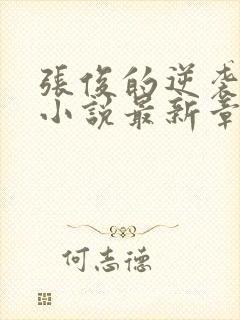 張俊的逆袭
小説最新章
何志德